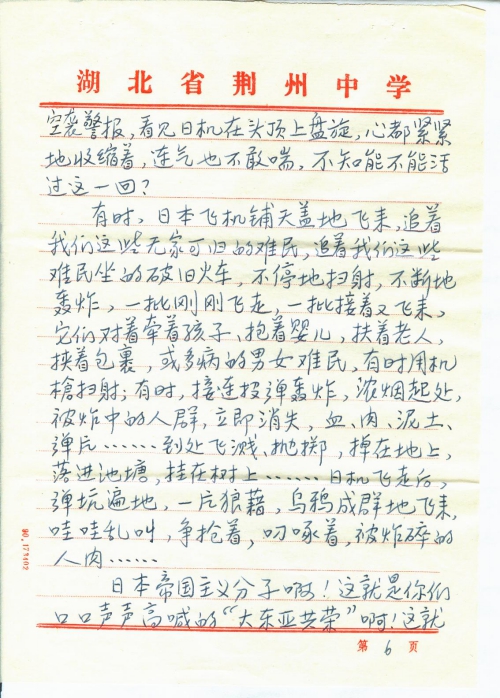 湖北省荆州中学
空袭警报，看见日机在头顶上盘旋，心都紧紧
地收缩着，连气也不敢喘，不知能不能活
过这一回？
有时，日本飞机铺天盖地飞来，追着
我们这些无家可归的难民，追着我们这些
难民坐的破旧火车，不停地扫射，不断地
轰炸，一批刚刚飞走，一批接着又飞来，
它们对着牵着孩子、抱着婴儿，扶着老人，
挟着包裹，或多病的男女难民，有时用机
槍扫射；有时，接连投弹轰炸，浓烟起处，
被炸中的人群，立即消失，血、肉、泥土、
弹片……到处飞溅、抛掷，掉在地上，
落进池塘，挂在树上……日机飞走后，
弹坑遍地，一片狼藉，乌鸦成群地飞来，
哇哇乱叫，争抢着，叨啄着，被炸碎的
人肉……
日本帝国主义分子啊！这就是你们
口口声声高喊的“大东亚共荣”啊！这就
第6页